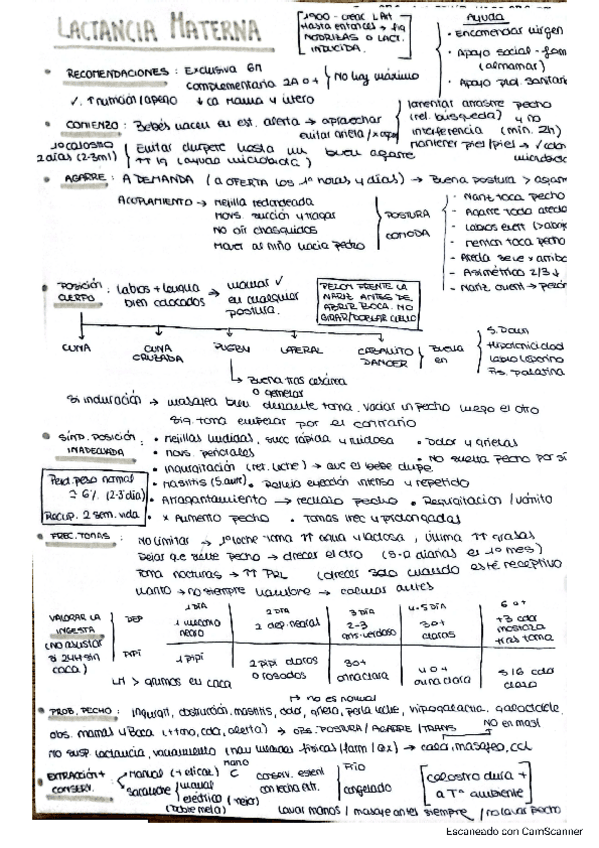 LACTANCIA MATERNA
1900 - crear L. Art
Hasta entonces →
NODRIZAS O LACT.
INDUCIDA.
Ayuda
· Encomendar virgen
· Apoyo social - fam
(almamar)
· Apoyo prof. sanitario
• RECOMENDACIONES: Exclusiva 6m
complementaria 2A o +
No hay máximo
✓. ↑ nutrición/apego ↓ ca mama y útero
• COMIENZO: Bebés nacen en est. alerta → aprovechar
evitar grieta
1º calostro
2 días (2-3ml)
Evitar chupete hasta un buen agarre
↑↑ Ig (ayuda microbiota)
fomentar arrastre pecho
(rel. búsqueda) y no
interferencia (min. 2h)
mantener piel/piel →
microbiota
• AGARRE: A DEMANDA (a OFERTA los 1º horas y días) → Buena postura > agarre
ACOPLAMIENTO → mejilla redondeada
Movs. succión y tragar
No oír chasquidos
Mover al niño hacia pecho
POSTURA
COMODA
- Nariz toca pecho
- Agarre todo areola
- labios evert (> abajo
- menton toca pecho
- Areola se ve x arriba
- Asimétrico 2/3 ↓
- Nariz → pezón
• POSICIÓN CUERPO: labios + lengua bien colocados → mamar ✓ en cualquier postura.
PEZON FRENTE LA
NARIZ ANTES DE
ABRIR BOCA. NO
GIRAR/DOBLAR CUELLO
CUNA
CUNA CRUZADA
RUGBY
LATERAL
CABALLITO
DANCER
Buena en
S. Down
Hipotonicidad
Labio leporino
Fis. palatina
↳ Buena tras cesárea
o gemelar
Si induración → masajea bien durante toma. vaciar un pecho luego el otro
Sig. toma empezar por el contrario
• SÍND. POSICIÓN INADECUADA:
• mejillas hundidas, succ rápida y ruidosa • Dolor y grietas
• movs. periorales • No suelta pecho por sí
• Ingurgitación (ret. leche) → que el bebe chupe.
• Mastitis (S. aure) • Reflejo eyección intenso y repetido
• Atragantamiento → rechazo pecho • Regurgitación / vómito
• x Aumento pecho • Tomas frec y prolongadas
Perd. peso normal
≃ 6% (2-3 día)
Recup. 2 sem. vida
• FREC. TOMAS: No limitar → 1º leche toma ↑↑ agua y lactosa, última ↑↑ grasas
Dejar que suelte pecho → ofrecer el otro (8-10 diarias el 1º mes)
Toma nocturnas → ↑↑ PRL (ofrecer solo cuando esté receptivo
llanto → no siempre hambre → calmar antes
VALORAR LA
INGESTA
(No asustar
si 24H sin
caca)
DEP
PIPÍ
1 DÍA
1 meconio
negro
1 pipí
2 DÍA
2 dep. negras
2 pipí claros
o rosados
3 DÍA
2-3
verdoso
3 o +
orina clara
4-5 DÍA
3 o +
claros
4 o +
orina clara
6 o +
+3 color
mostaza
tras toma
5 | 6 color
claro
LH > grumos en caca
↦ no es normal
• PROB. PECHO: Ingurgit, obstrucción, mastitis, dolor, grieta, perla leche, hipogalactia, galactocele.
obs. mamas y Boca → obs. POSTURA / AGARRE / TRANS
NO en mast
NO susp lactancia, vaciamiento → calor, masajeo, col
• EXTRACCIÓN + CONSERV.
manual (+ eficaz) mano C
sacaleche
manual
eléctrico (mejor)
(doble mejor)
conserv. esteril
con fecha extr.
Frío
congelado
calostro dura +
a Tª ambiente
lavar manos / masaje antes siempre / no lavar pecho
Escaneado con CamScanner